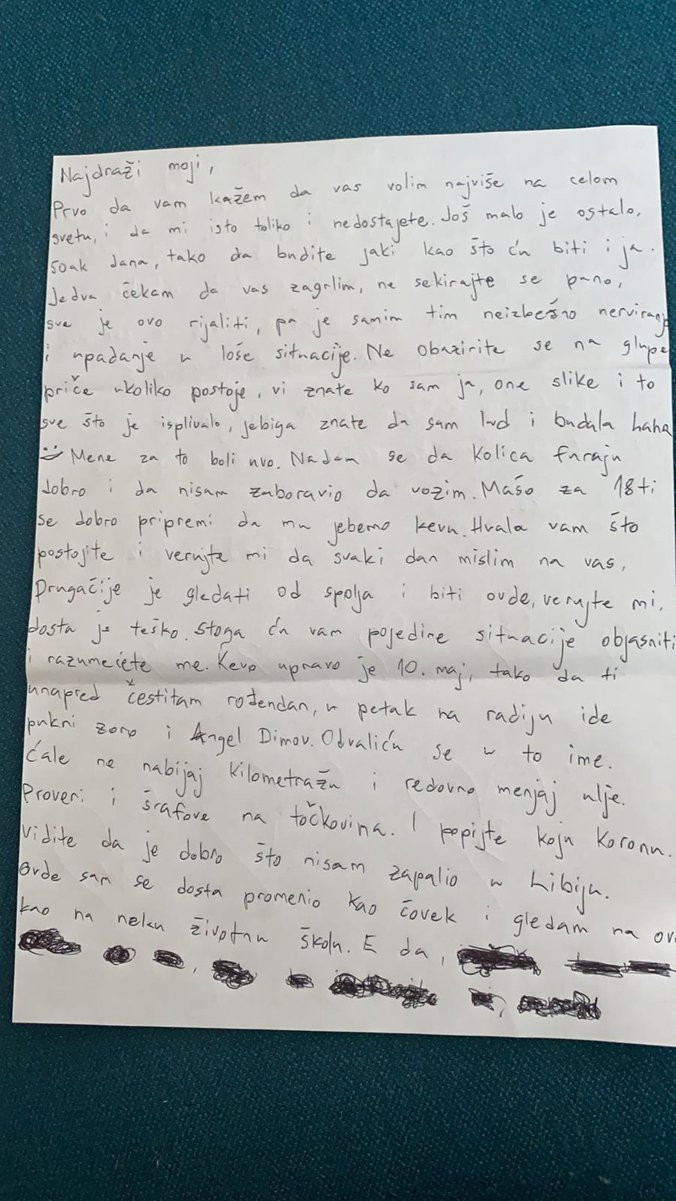 Najdraži moji,
Prvo da vam kažem da vas volim najviše na celom
svetu, i da mi isto toliko i nedostajete. Još malo je ostalo,
soak dana, tako da budite jaki kao što ću biti i ja.
Jedva čekam da vas zagrlim, ne sekirajte se puno,
sve je ovo rijaliti, pa je samim tim neizbežno nerviranje
i upadanje u loše situacije. Ne obazirite se na glupe
priče ukoliko postoje, vi znate ko sam ja, one slike i to
sve što je isplivalo, jebiga znate da sam lud i budala haha
Mene za to boli uvo. Nadam se da kolica furaju
dobro i da nisam zaboravio da vozim. Mašo za 18ti
se dobro pripremi da mu jebemo kevu. Hvala vam što
postojite i verujte mi da svaki dan mislim na vas.
Drugačije je gledati od spolja i biti ovde, verujte mi,
dosta je teško. Stoga ću vam pojedine situacije objasniti
i razumećete me. Kevo upravo je 10. maj, tako da ti
unapred čestitam rođendan, u petak na radiju ide
pukni zoro i Angel Dimov. Odvaliću se u to ime.
Ćale ne nabijaj kilometražu i redovno menjaj ulje.
Proveri i šrafove na točkovima. I popijte koju Koronu.
Vidite da je dobro što nisam zapalio u Libiju.
Ovde sam se dosta promenio kao čovek i gledam na ov
kao na neku životnu školu. E da,